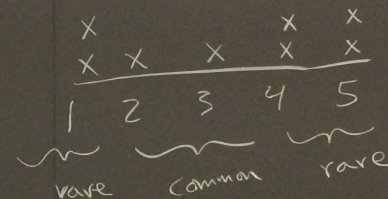 X X X
X X X X X
1 2 3 4 5
rare common rare